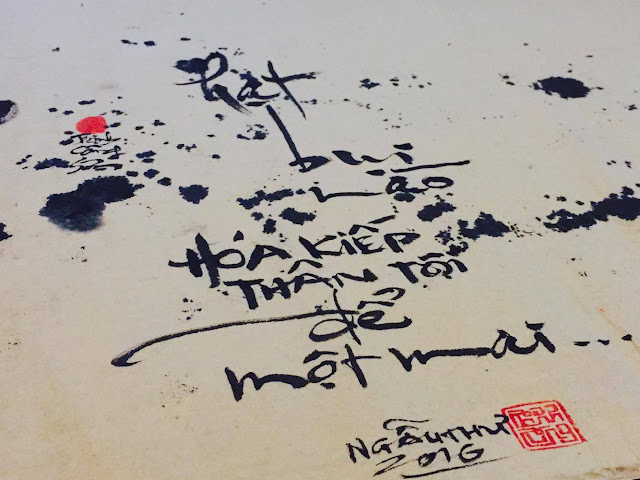 Trịnh
Công
Sơn
hạt
bụi
nào
HÓA KIẾP
THÂN TÔI
để
một mai...
NGẪU THƯ
2016